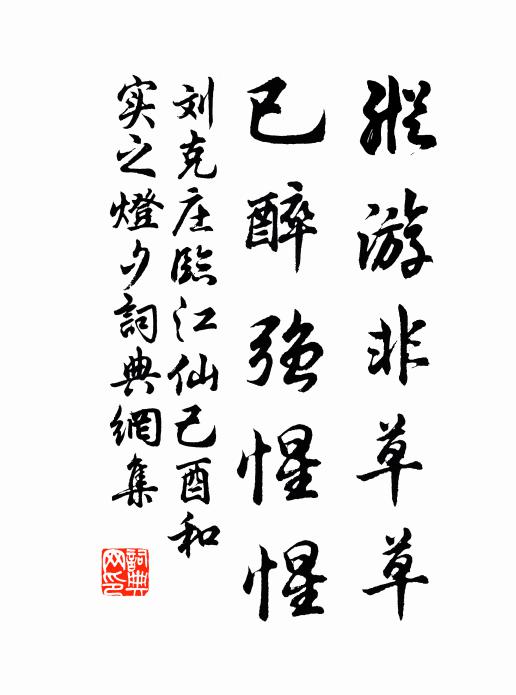 縱游非草草
已醉强惺惺
刘克庄臨江仙己酉和
实之燈夕詞典網集
詞典
网印